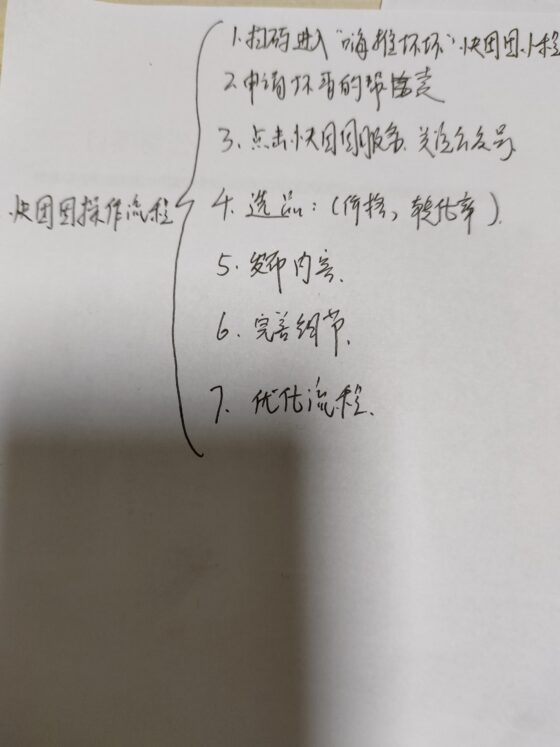 快团团操作流程
1.扫码进入"嗨推怀怀"快团团小程
2.申请怀哥的帮卖
3.点击快团团服务、关注公众号
4.选品:(价格,转化率)
5.发布内容、
6.完善细节、
7.优化流程、